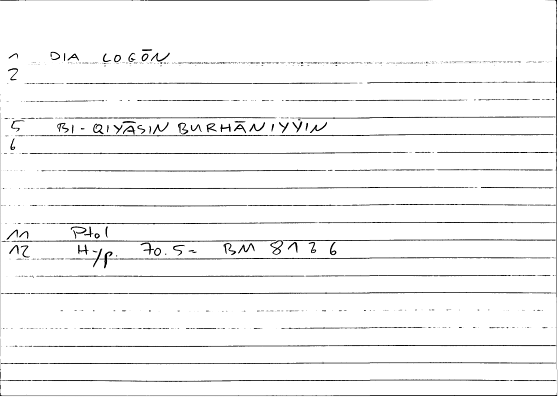 1 DIA LOGŌN
2
5 BI-QIYĀSIN BURHĀNIYYIN
6
11 Ptol
12 Hyp. 70.5 ~ BM 81 b 6